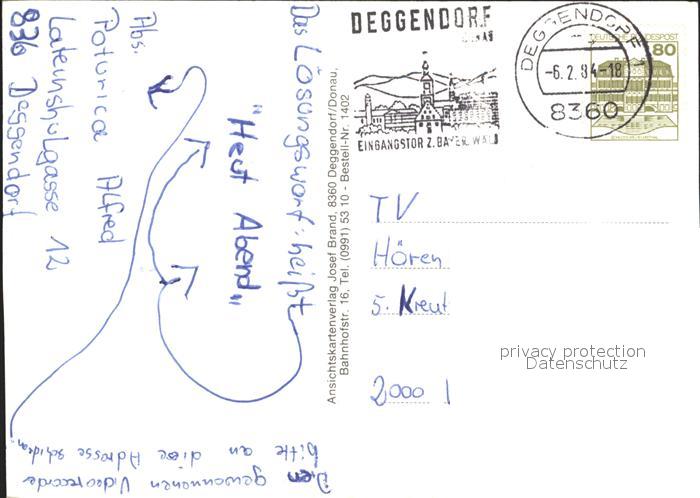 Abs:
Poturica Alfred
Lateinschulgasse 12
836 Deggendorf
Das Lösungswort: heißt
"Heut Abend"
Den gewonnenen Videorecorder
bitte an diese Adresse schicken.
Ansichtskartenverlag Josef Brand, 8360 Deggendorf/Donau,
Bahnhofstr. 16, Tel. (0991) 53 10 - Bestell-Nr. 1402
DEGGENDORF
DONAU
EINGANGSTOR Z. BAYER. WALD
DEGGENDORF 1
-6.2.84-18
8360
DEUTSCHE BUNDESPOST
80
TV
Hören
5. Kreut
2000 1
privacy protection
Datenschutz